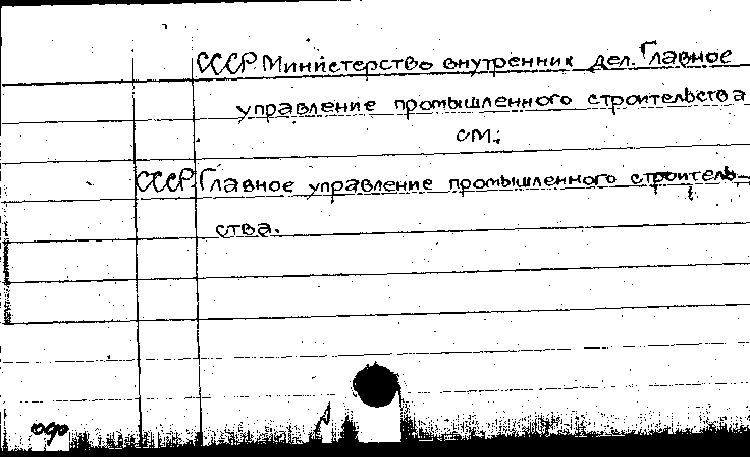 СССР. Министерство внутренних дел. Главное
управление промышленного строительства
см.:
СССР. Главное управление промышленного строитель-
ства.